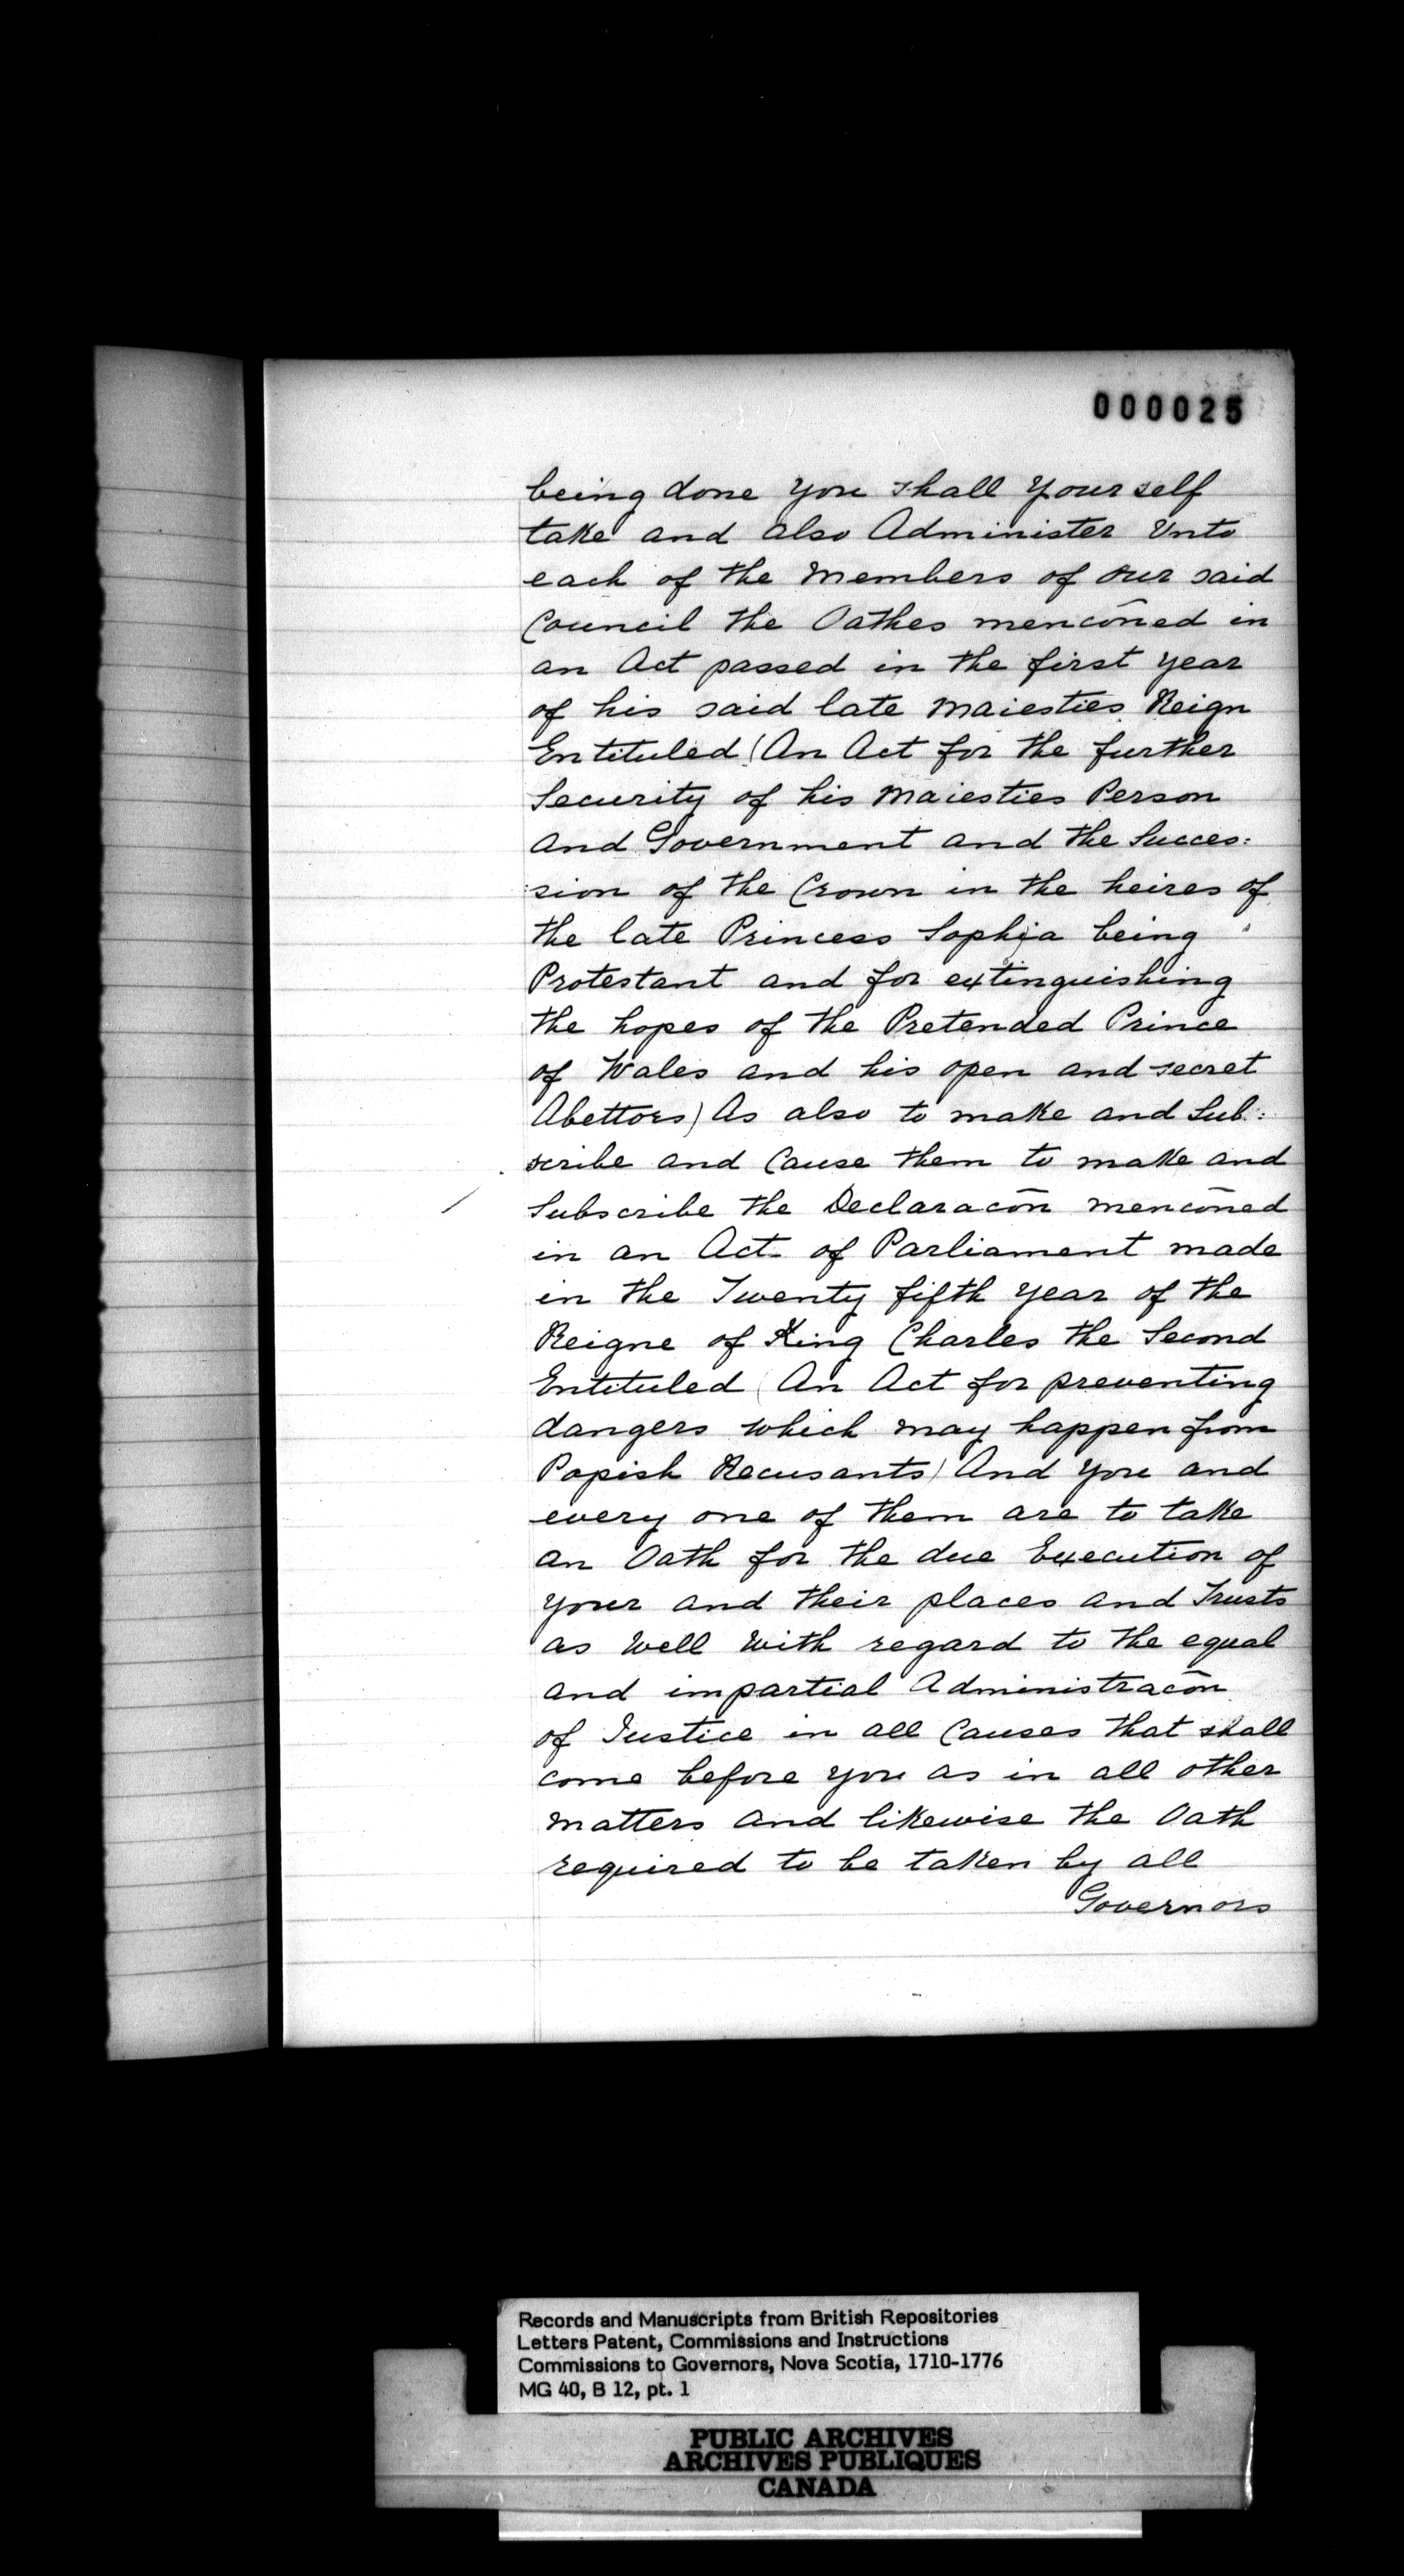 000025
being done you shall your self
take and also Administer Vnto
each of the Members of our said
Council the Oathes menc̄oned in
an Act passed in the first year
of his said late Maiesties Reign
Entituled (An Act for the further
Security of his Maiesties Person
and Government and the Succes:
sion of the Crown in the heires of
the late Princess Sophia being
Protestant and for extinguishing
the hopes of the Pretended Prince
of Wales and his open and secret
Abettors) As also to make and Sub:
scribe and Cause them to make and
Subscribe the Declarac̄on menc̄oned
in an Act of Parliament made
in the Twenty fifth year of the
Reigne of King Charles the Second
Entituled (An Act for preventing
dangers which may happen from
Popish Recusants) And you and
every one of them are to take
an Oath for the due Execution of
your and their places and Trusts
as well with regard to the equal
and impartial Administrac̄on
of Justice in all Causes that shall
come before you as in all other
matters and likewise the Oath
required to be taken by all
Governors
Records and Manuscripts from British Repositories
Letters Patent, Commissions and Instructions
Commissions to Governors, Nova Scotia, 1710-1776
MG 40, B 12, pt. 1
PUBLIC ARCHIVES
ARCHIVES PUBLIQUES
CANADA